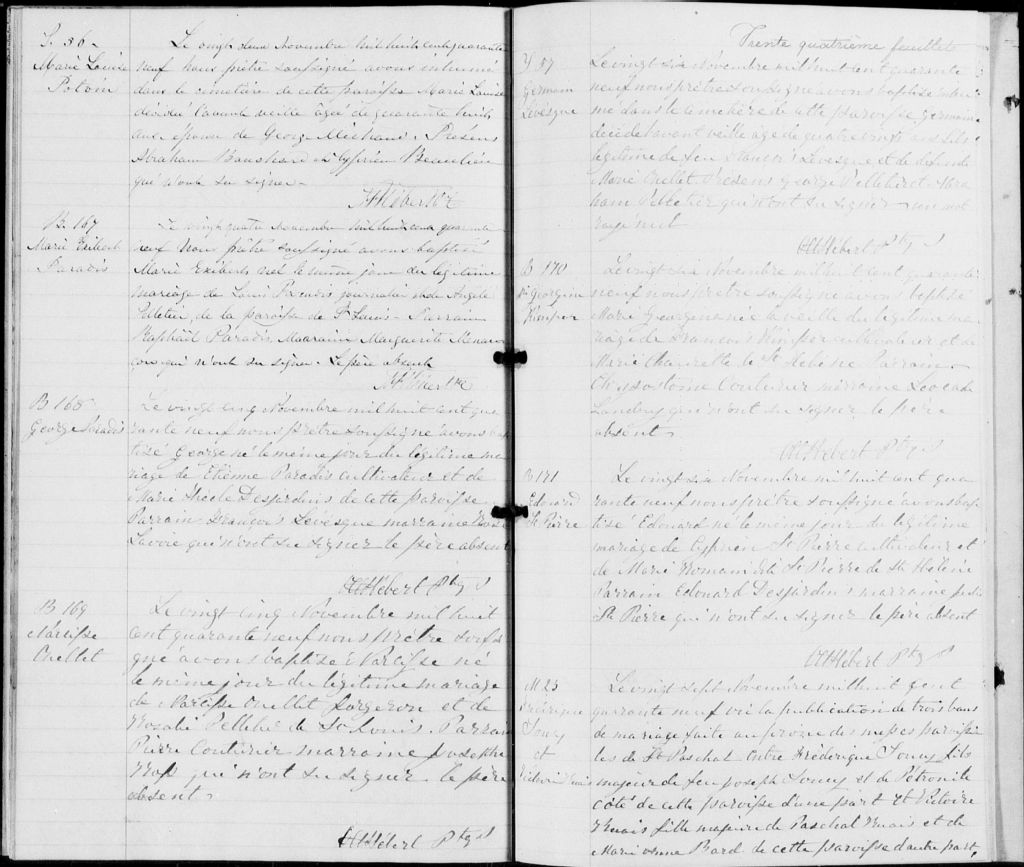 S. 56
Marie Louise
Potvin
Le vingt deux Novembre mil huit cent quarante
neuf nous prêtre soussigné avons inhumé
dans le cimetière de cette paroisse Marie Louise
décédée l'avant veille âgée de quarante huit
ans épouse de George Michaud. Présens
Abraham Bouchard et Cyprien Beaulieu
qui n'ont su signer.
Hébert Ptre
B. 167
Marie Exiberte
Paradis
Le vingt quatre Novembre mil huit cent quarante
neuf Nous prêtre soussigné avons baptisé
Marie Exiberte née le même jour du légitime
mariage de Louis Paradis journalier et de Angèle
Pelletier, de la paroisse de St Louis - Parrain
Raphaël Paradis Marraine Marguerite
qui n'ont su signer. Le père absent
Hébert Ptre
B 168
George Paradis
Le vingt cinq Novembre mil huit cent qua
rante neuf nous prêtre soussigné avons bap
tisé George né le même jour du légitime ma
riage de Etienne Paradis cultivateur et de
Marie Nicole Desjardins de cette paroisse
Parrain François Lévesque marraine Rose
Lavoie qui n'ont su signer le père absent
Hébert Ptre
B 169
Narcisse
Ouellet
Le vingt cinq Novembre mil huit
cent quarante neuf nous prêtre soussi
gné avons baptisé Narcisse né
le même jour du légitime mariage
de Narcisse Ouellet forgeron et de
Rosalie Pelletier de St Louis. Parrain
Pierre Couturier marraine Josephe
Roy qui n'ont su signer le père
absent.
Hébert Ptre
Trente quatrième feuillet
S 57
Germain
Lévesque
Le vingt six Novembre mil huit cent quarante
neuf nous prêtre soussigné avons baptisé inhu
mé dans le cimetière de cette paroisse Germain
décédé l'avant veille âgé de quatre vingts ans fils
légitime de feu François Lévesque et de défunte
Marie Ouellet. Présens George Pelletier et Abra
ham Pelletier qui n'ont su signer un mot
rayé nul
Hébert Ptre
B 170
M Georgina
Kimper
Le vingt six Novembre mil huit cent quarante
neuf nous prêtre soussigné avons baptisé
Marie Georgina née la veille du légitime ma
riage de François Kimper cultivateur et de
Marie Chaurette de St Helène Parrain
Chrysostome Couturier marraine Leocade
Landry qui n'ont su signer le père
absent.
Hébert Ptre
B 171
Edouard
St Pierre
Le vingt six Novembre mil huit cent qua
rante neuf nous prêtre soussigné avons bap
tisé Edouard né le même jour du légitime
mariage de Cyprien St Pierre cultivateur et
de Marie Romain dit St Pierre de St Helène
Parrain Edouard Desjardins marraine
St Pierre qui n'ont su signer le père absent
Hébert Ptre
M 23
Fréderique
Soucy
et
Victoire
Le vingt sept Novembre mil huit cent
quarante neuf vu la publication de trois bans
de mariage faite au prone des messes paroissia
les de St Paschal entre Fréderique Soucy fils
majeur de feu Joseph Soucy et de Pétronile
Coté de cette paroisse d'une part et Victoire
fille majeure de Paschal et de
Marie Anne Bard de cette paroisse d'autre part,